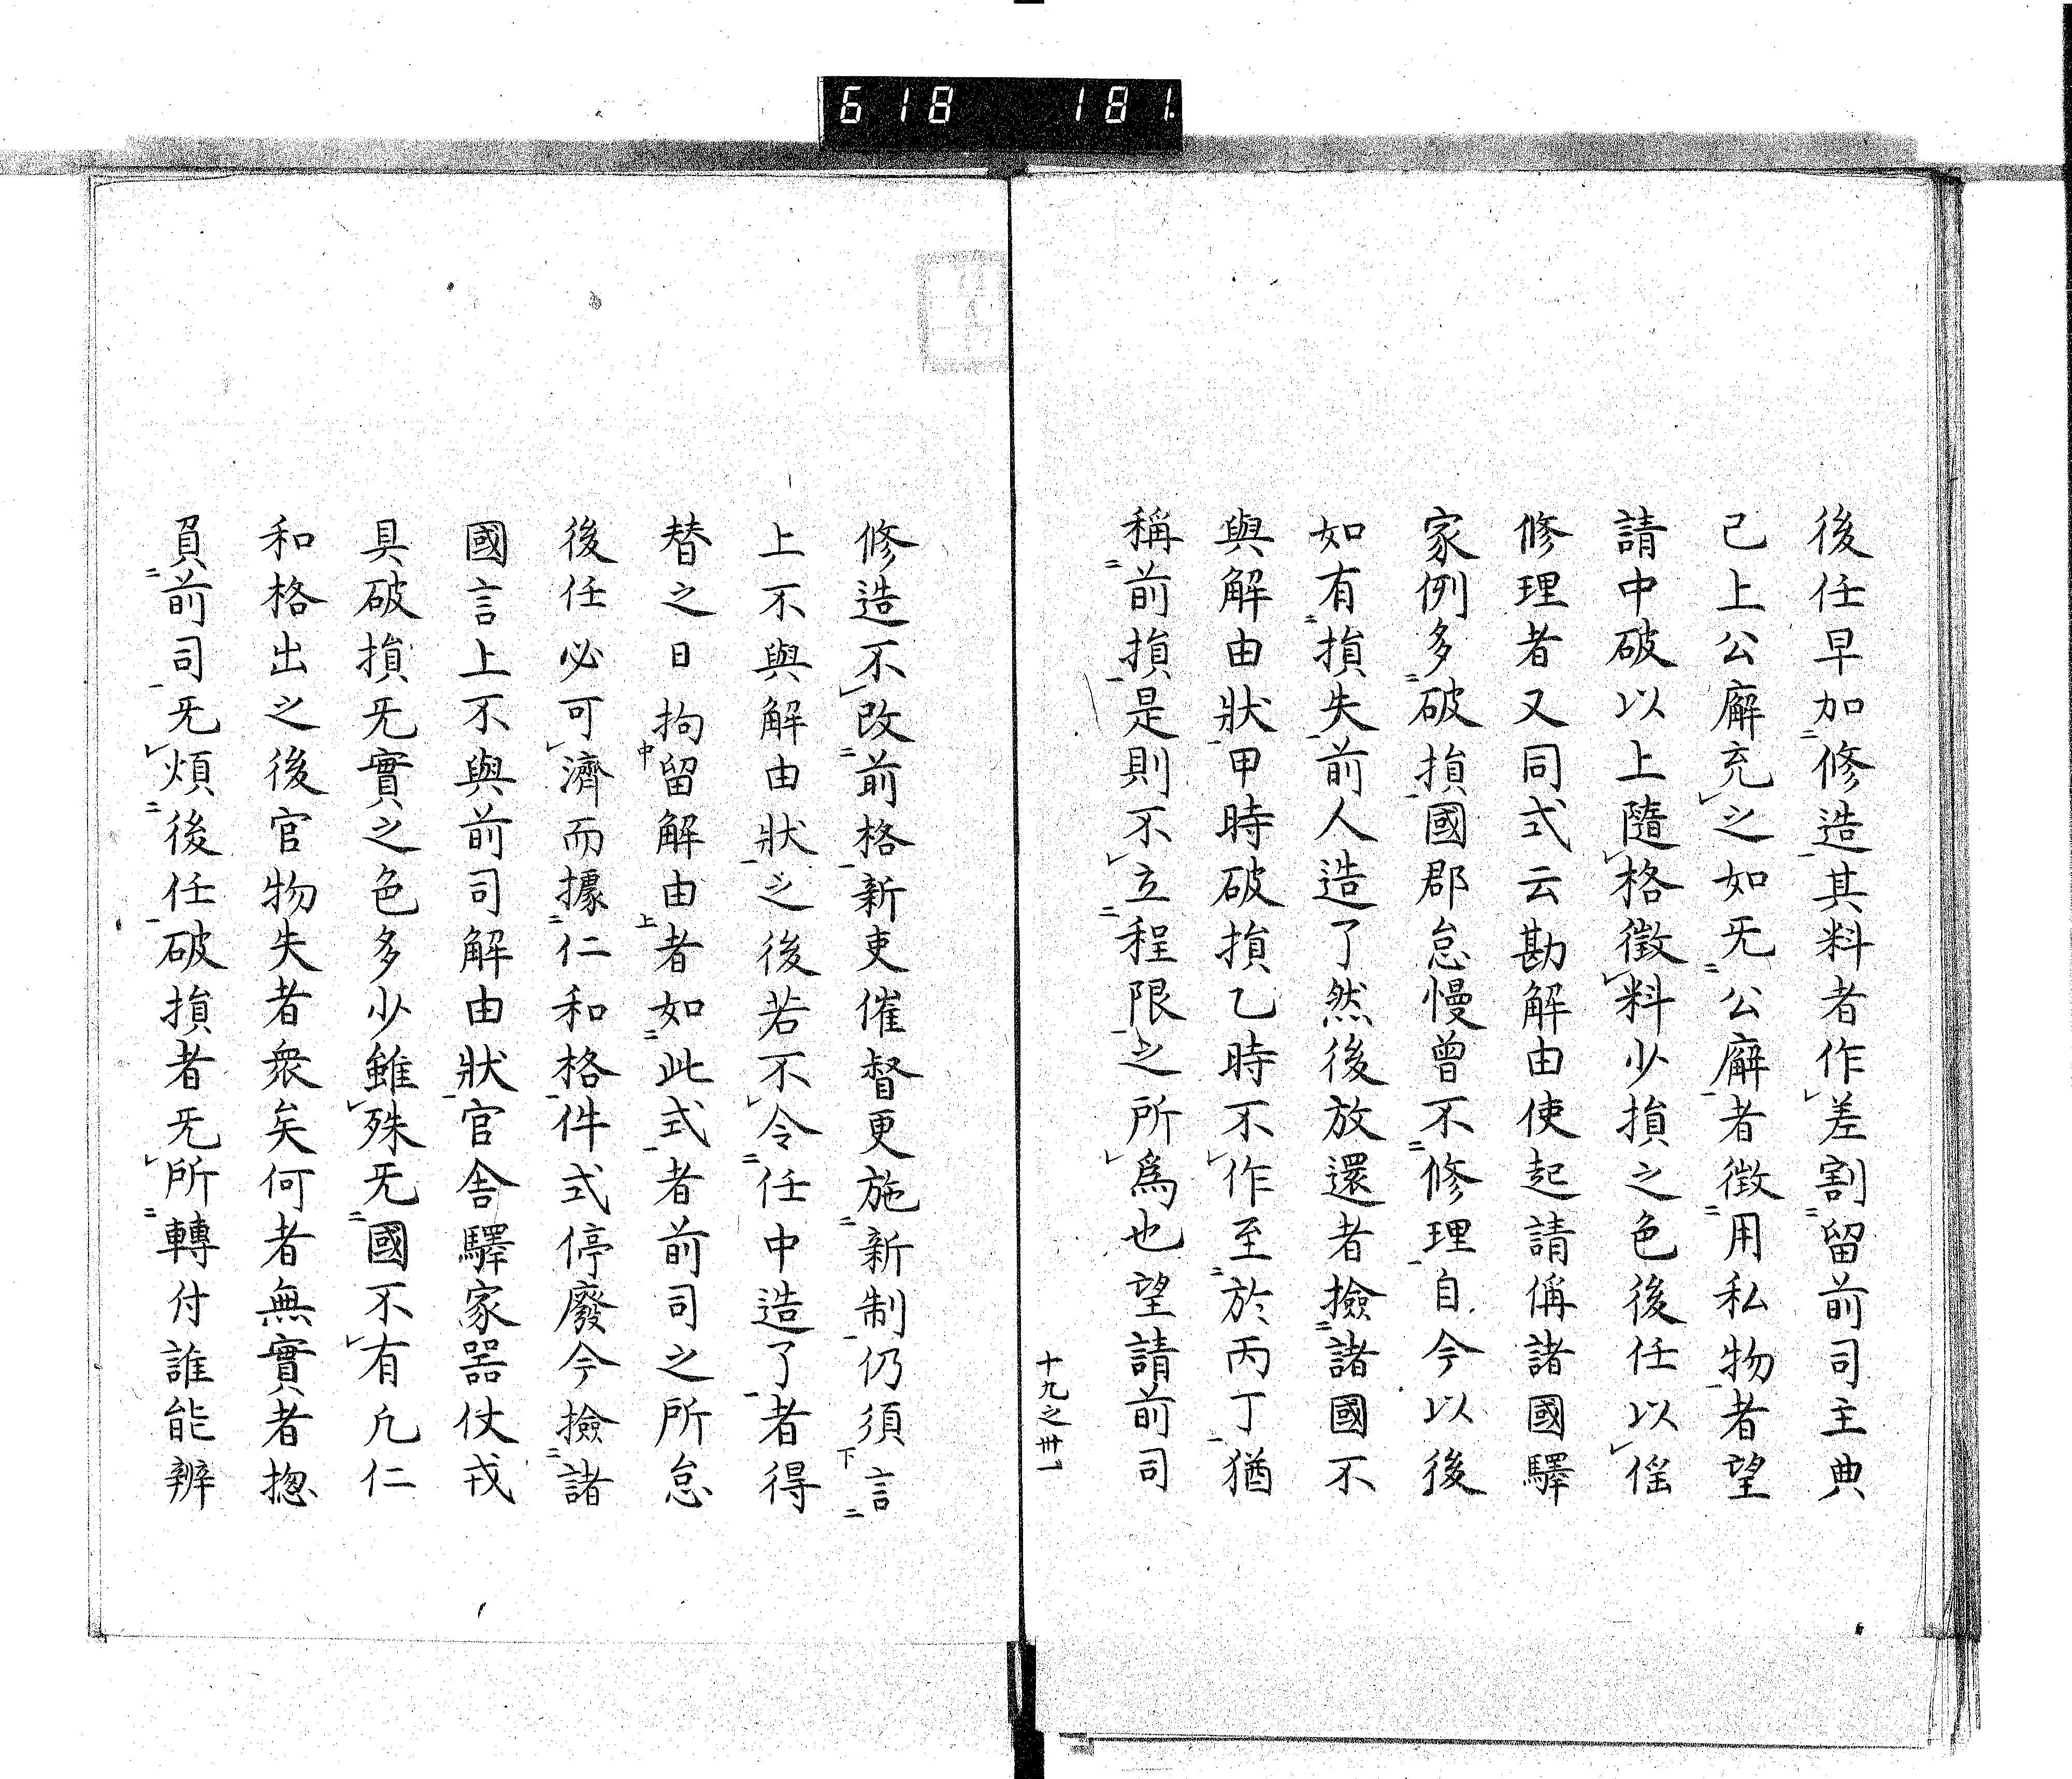 618 181.
後任早加修造其料者作差割留前司主典
已上公廨充之如旡公廨者徴用私物者望
請中破以上隨格徴料少損之色後任以徭
修理者又同式云勘解由使起請偁諸國驛
家例多破損國郡怠慢曾不修理自今以後
如有損失前人造了然後放還者撿諸國不
與解由狀甲時破損乙時不作至於丙丁猶
稱前損是則不立程限之所爲也望請前司
十九之卅一
修造不改前格新吏催督更施新制仍須言
上不與解由狀之後若不令任中造了者得
替之日拘留解由者如此式者前司之所怠
後任必可濟而據仁和格件式停廢今撿諸
國言上不與前司解由狀官舎驛家器仗戎
具破損旡實之色多少雖殊旡國不有凢仁
和格出之後官物失者衆矣何者無實者揔
負前司旡煩後任破損者旡所轉付誰能辨